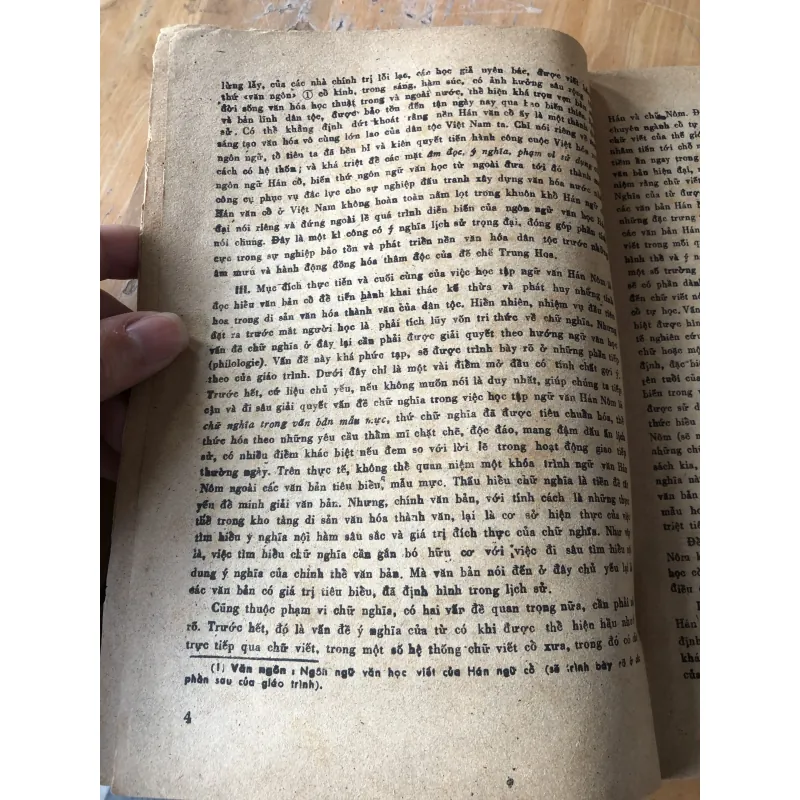 lừng lẫy, của các nhà chính trị lỗi lạc, các học giả uyên bác, được viết
thứ «văn ngôn» (1) cổ kính, trong sáng, hàm súc, có ảnh hưởng sâu rộng
đời sống văn hóa học thuật trong và ngoài nước, thể hiện khá trọn vẹn bản
và bản lĩnh dân tộc, được bảo tồn đến tận ngày nay qua bao biến thiên
sử. Có thể khẳng định dứt khoát rằng nền Hán văn cổ ấy là một thành
sáng tạo văn hóa vô cùng lớn lao của dân tộc Việt Nam ta. Chỉ nói riêng về
ngôn ngữ, tổ tiên ta đã bền bỉ và kiên quyết tiến hành công cuộc Việt hóa
cách có hệ thống; và khá triệt để các mặt âm đọc, ý nghĩa, phạm vi sử dụng
ngôn ngữ Hán cổ, biến thứ ngôn ngữ văn học từ ngoài đưa tới đó thành
công cụ phục vụ đắc lực cho sự nghiệp đấu tranh xây dựng văn hóa nước nhà
Hán văn cổ ở Việt Nam không hoàn toàn nằm lọt trong khuôn khổ Hán ngữ
đại nói riêng và đứng ngoài lề quá trình diễn biến của ngôn ngữ văn học Hán
nói chung. Đây là một kì công có ý nghĩa lịch sử trọng đại, đóng góp phần tích
cực trong sự nghiệp bảo tồn và phát triển nền văn hóa dân tộc trước những
âm mưu và hành động đồng hóa thâm độc của đế chế Trung Hoa.
III. Mục đích thực tiễn và cuối cùng của việc học tập ngữ văn Hán Nôm là
đọc hiểu văn bản cổ để tiến hành khai thác kế thừa và phát huy những tinh
hoa trong di sản văn hóa thành văn của dân tộc. Hiển nhiên, nhiệm vụ đầu tiên
đặt ra trước mắt người học là phải tích lũy vốn tri thức về chữ nghĩa. Nhưng
vấn đề chữ nghĩa ở đây lại cần phải được giải quyết theo hướng ngữ văn học
(philologie). Vấn đề này khá phức tạp, sẽ được trình bày rõ ở những phần tiếp
theo của giáo trình. Dưới đây chỉ là một vài điểm mở đầu có tính chất gợi ý.
Trước hết, cứ liệu chủ yếu, nếu không muốn nói là duy nhất, giúp chúng ta tiếp
cận và đi sâu giải quyết vấn đề chữ nghĩa trong việc học tập ngữ văn Hán Nôm là
chữ nghĩa trong văn bản mẫu mực, thứ chữ nghĩa đã được tiêu chuẩn hóa, thể
thức hóa theo những yêu cầu thẩm mĩ chặt chẽ, độc đáo, mang đậm dấu ấn lịch
sử, có nhiều điểm khác biệt nếu đem so với lời lẽ trong hoạt động giao tiếp
thường ngày. Trên thực tế, không thể quan niệm một khóa trình ngữ văn Hán
Nôm ngoài các văn bản tiêu biểu, mẫu mực. Thấu hiểu chữ nghĩa là tiền đề tất
yếu để minh giải văn bản. Nhưng, chính văn bản, với tính cách là những thực
thể trong kho tàng di sản văn hóa thành văn, lại là cơ sở hiện thực của việc
tìm hiểu ý nghĩa nội hàm sâu sắc và giá trị đích thực của chữ nghĩa. Như vậy
là, việc tìm hiểu chữ nghĩa cần gắn bó hữu cơ với việc đi sâu tìm hiểu nội
dung ý nghĩa của chỉnh thể văn bản. Mà văn bản nói đến ở đây chủ yếu lại là
các văn bản có giá trị tiêu biểu, đã định hình trong lịch sử.
Cũng thuộc phạm vi chữ nghĩa, có hai vấn đề quan trọng nữa, cần phải
rõ. Trước hết, đó là vấn đề ý nghĩa của từ có khi được thể hiện hầu như
trực tiếp qua chữ viết, trong một số hệ thống chữ viết cổ xưa, trong đó có
(1) Văn ngôn : Ngôn ngữ văn học viết của Hán ngữ cổ (sẽ trình bày rõ ở các
phần sau của giáo trình).
4
Hán và chữ Nôm.
chuyên ngành cổ tự
chữ viết của thế
nhằm tiến tới chỗ
tiềm ẩn ngay trong
văn bản hiện đại,
niệm rằng chữ viết
của từ được
các văn bản Hán
những đặc trưng
viết trong mối
hình thể và ý
một số trường
có phần dành
đến chữ viết
cổ tự học.
biệt được hình
tế nghiên cứu
chữ hoặc một
định, đặc biệt
tên tuổi của
được sử
thức biểu
Nôm (sẽ
sách kia,
nghĩa
văn bản
mẫu
triệt
Nôm
học
điều
Hán
định